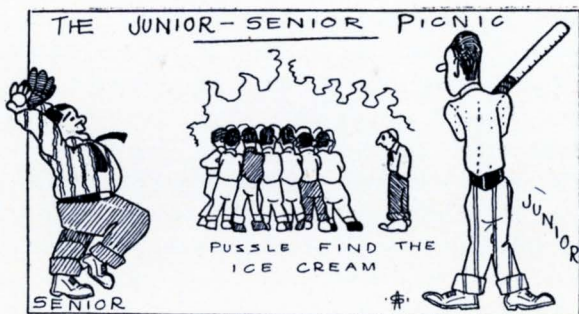 THE JUNIOR-SENIOR PICNIC
PUSSLE FIND THE
ICE CREAM
SENIOR
JUNIOR